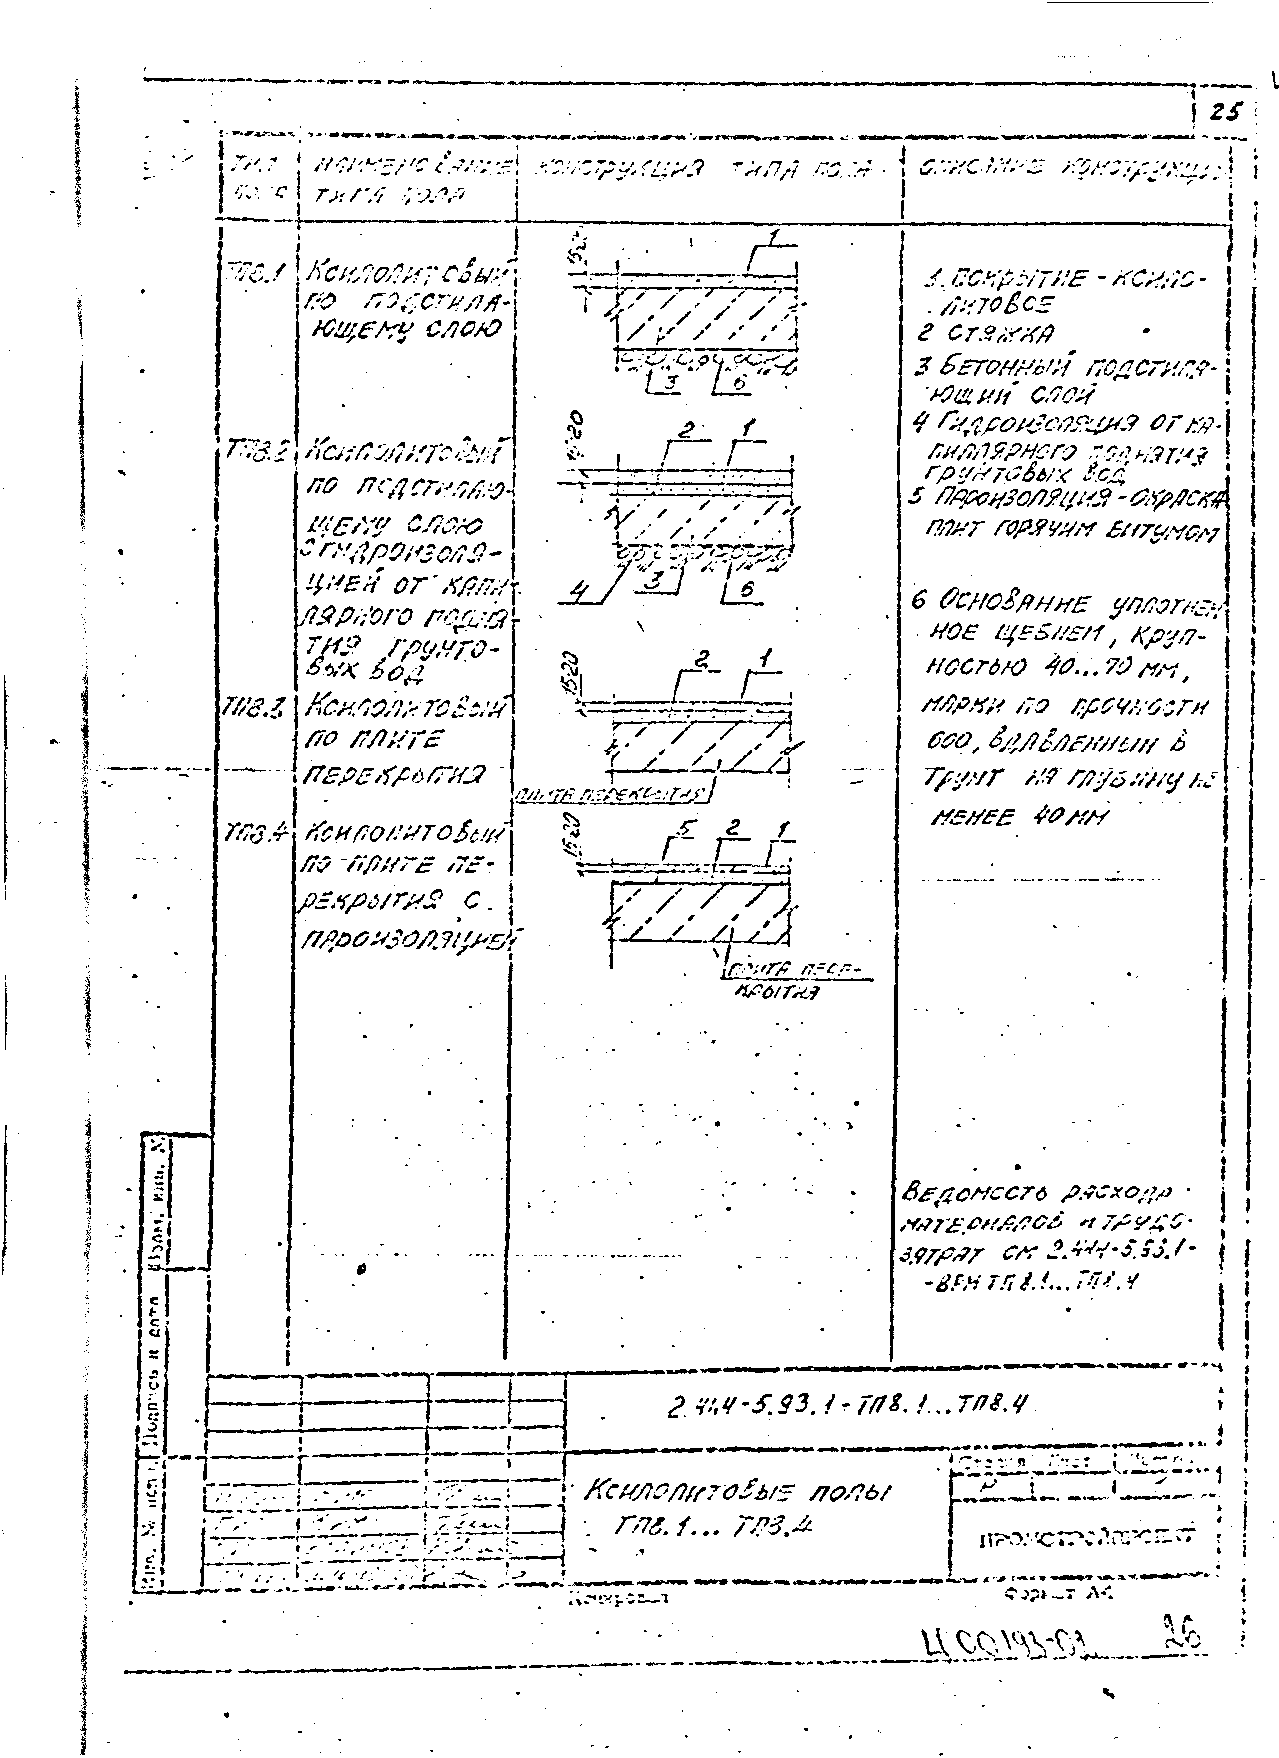 25
ТИП ПОЛА
НАИМЕНОВАНИЕ ТИПА ПОЛА
КОНСТРУКЦИЯ ТИПА ПОЛА
ОПИСАНИЕ КОНСТРУКЦИИ
ТП8.1
Ксилолитовый
по подстила-
ющему слою
15÷20
1
3 6
ТП8.2
Ксилолитовый
по подстилаю-
щему слою
с гидроизоля-
цией от капи-
лярного подня-
тия грунто-
вых вод
15÷20
2 1
4 3 6
ТП8.3
Ксилолитовый
по плите
перекрытия
15÷20
2 1
плита перекрытия
ТП8.4
Ксилолитовый
по плите пе-
рекрытия с
пароизоляцией
15÷20
5 2 1
плита пере-
крытия
1. Покрытие - ксило-
литовое
2 Стяжка
3 Бетонный подстила-
ющий слой
4 Гидроизоляция от ка-
пиллярного поднятия
грунтовых вод
5 Пароизоляция - окраска
плит горячим битумом
6 Основание уплотнен-
ное щебнем, круп-
ностью 40...70 мм,
марки по прочности
600, вдавленным в
грунт на глубину не
менее 40 мм
Ведомость расхода
материалов и трудо-
затрат см 2.444-5.93.1-
-ВРМ ТП8.1...ТП8.4
Взам. инв. №
Подпись и дата
Инв. № подл.
2.444-5.93.1-ТП8.1...ТП8.4
Ксилолитовые полы
ТП8.1... ТП8.4
Стадия Лист Листов
Р
ПРОМСТРОЙПРОЕКТ
Копировал
Формат А4
Ц00193-02 26